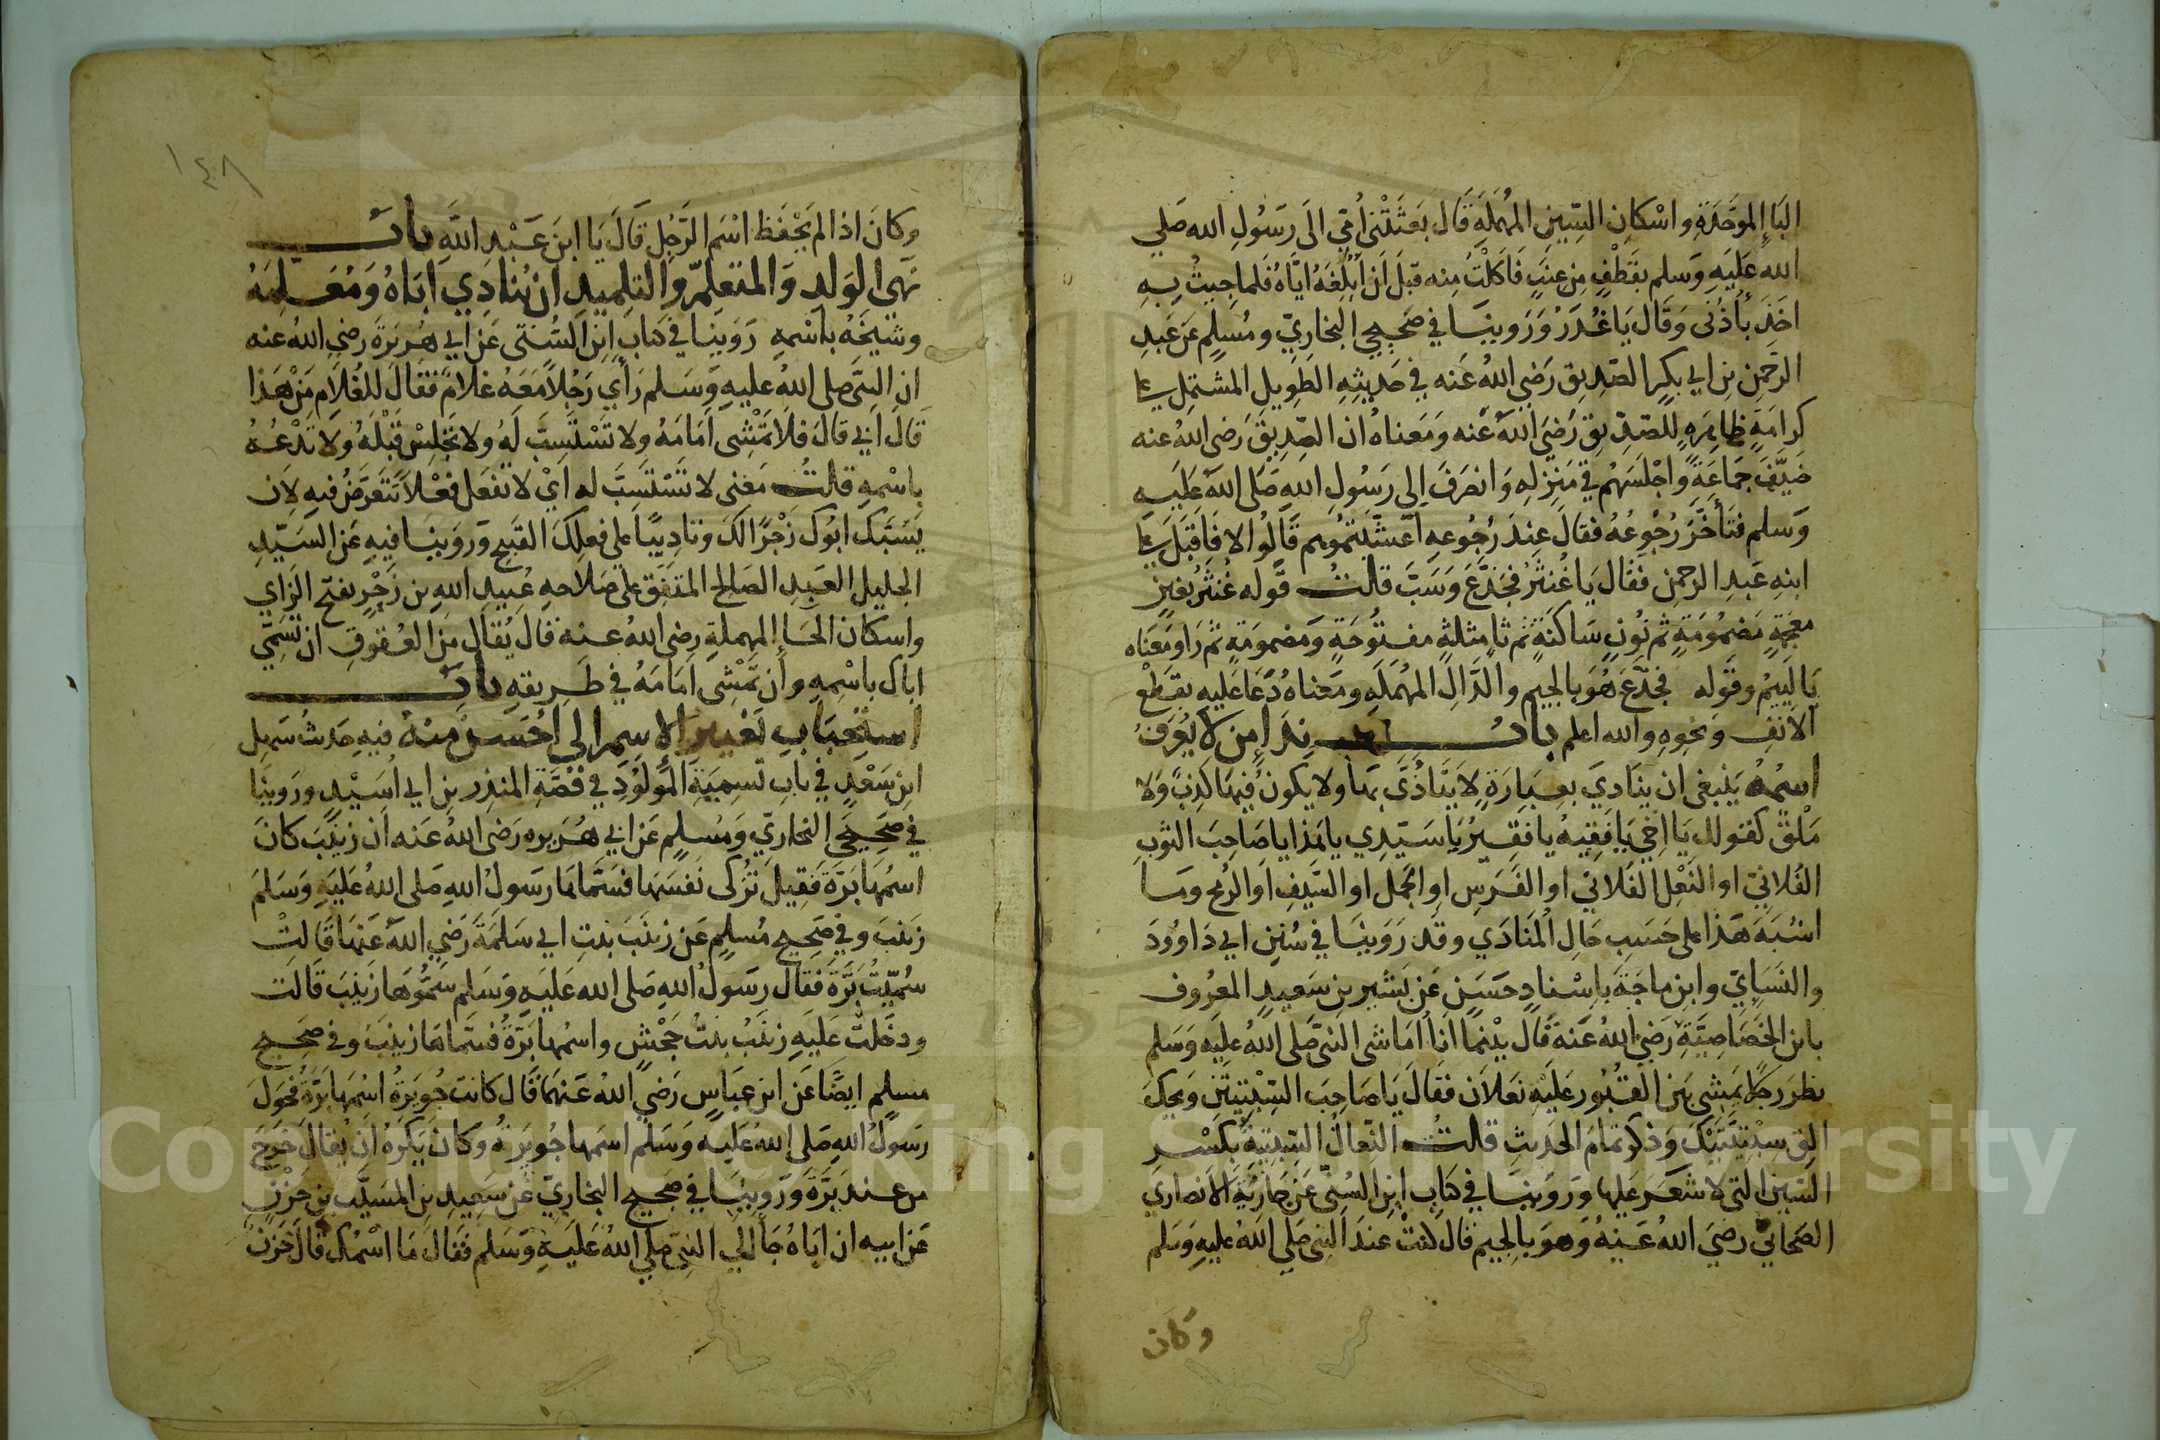 الباء الموحدة واسكان السين المهملة قال بعثتني امي الى رسول الله صلي
الله عليه وسلم بقطف من عنب فاكلت منه قبل ان ابلغه اياه فلما جيت به
اخذ باذني وقال يا غدر وروينا في صحيحي البخاري ومسلم عن عبد
الرحمن بن ابي بكر الصديق رضي الله عنه في حديثه الطويل المشتمل علي
كرامة ظاهره للصديق رضي الله عنه ومعناه ان الصديق رضي الله عنه
ضيف جماعة واجلسهم في منزله وانصرف الي رسول الله صلى الله عليه
وسلم فتأخر رجوعه فقال عند رجوعه اعشيتموهم قالوا لا فاقبل علي
ابنه عبد الرحمن فقال يا غنثر فجدع وسب قلت قوله غنثر بغين
معجمة مضمومة ثم نون ساكنة ثم ثا مثلثة مفتوحة ومضمومة ثم را ومعناه
يا لييم وقوله فجدع هو بالجيم والدال المهمله ومعناه دعا عليه بقطع
الانف ونحوه والله اعلم باب ندا من لا يعرف
اسمه ينبغي ان ينادي بعبارة لا يتاذى بها ولا يكون فيها كذب ولا
ملق كقولك يا اخي يا فقيه يا فقير يا سيدي يا هذا يا صاحب الثوب
الفلاني او النعل الفلاني او الفرس او الجمل او السيف او الرمح وما
اشبه هذا على حسب حال المنادي وقد روينا في سنن ابي داوود
والنساي وابن ماجة باسناد حسن عن بشير بن سعيد المعروف
بابن الخصاصية رضي الله عنه قال بينما انا اماشي النبي صلى الله عليه وسلم
نظر رجلا يمشي بين القبور عليه نعلان فقال يا صاحب السبتيتين ويحك
الق سبتيتيك وذكر تمام الحديث قلت النعال السبتية بكسر
السين التي لا شعر عليها وروينا في كتاب ابن السني عن جارية الانصاري
الصحابي رضي الله عنه وهو بالجيم قال كنت عند النبي صلي الله عليه وسلم
وكان
١٤٨
وكان اذا لم يحفظ اسم الرجل قال يا ابن عبد الله باب
نهي الولد والمتعلم والتلميذ ان ينادي اباه ومعلمه
وشيخه باسمه روينا في كتاب ابن السني عن ابي هريرة رضي الله عنه
ان النبي صلى الله عليه وسلم رأي رجلا معه غلام فقال للغلام من هذا
قال ابي قال فلا تمشي امامه ولا تستسب له ولا تجلس قبله ولا تدعه
باسمه قلت معنى لا تستسب له اي لا تفعل فعلا تتعرض فيه لان
يسبك ابوك زجرا لك وتاديبا علي فعلك القبيح وروينا فيه عن السيد
الجليل العبد الصالح المتفق علي صلاحه عبيد الله بن زحر بفتح الزاي
واسكان الحاء المهملة رضي الله عنه قال يقال من العقوق ان تسمي
اباك باسمه وان تمشي امامه في طريقه باب
استحباب تغيير الاسم الي احسن منه فيه حديث سهل
ابن سعد في باب تسمية المولود في قصة المنذر بن ابي اسيد وروينا
في صحيحي البخاري ومسلم عن ابي هريره رضي الله عنه ان زينب كان
اسمها برة فقيل تزكي نفسها فسماها رسول الله صلى الله عليه وسلم
زينب وفي صحيح مسلم عن زينب بنت ابي سلمة رضي الله عنها قالت
سميت برة فقال رسول الله صلى الله عليه وسلم سموها زينب قالت
ودخلت عليه زينب بنت جحش واسمها برة فسماها زينب وفي صحيح
مسلم ايضا عن ابن عباس رضي الله عنهما قال كانت جويرة اسمها برة فحول
رسول الله صلى الله عليه وسلم اسمها جويرة وكان يكره ان يقال خرج
من عند برة وروينا في صحيح البخاري عن سعيد بن المسيب بن حزن
عن ابيه ان اباه جا الي النبي صلي الله عليه وسلم فقال ما اسمك قال حزن
Copyright © King Saud University